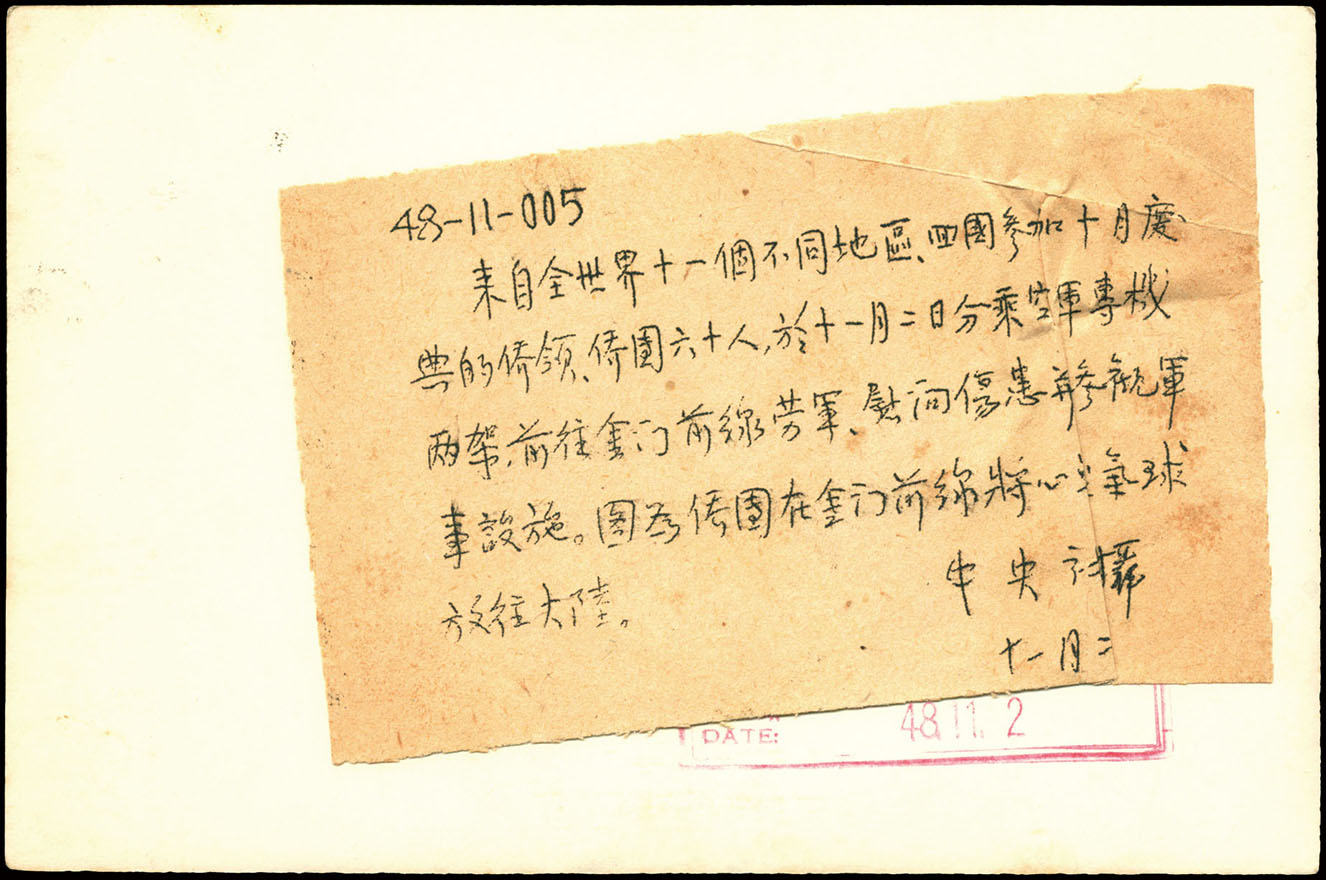 48-11-005
来自全世界十一個不同地區、回國參加十月慶
典的侨領、侨團六十人,於十一月二日分乘空軍專機
両架,前往金门前線劳軍、慰问傷患并參观軍
事設施。图為侨團在金门前線將心战氣球
放往大陸。
中央社攝
十一月二
DATE: 48.11.2